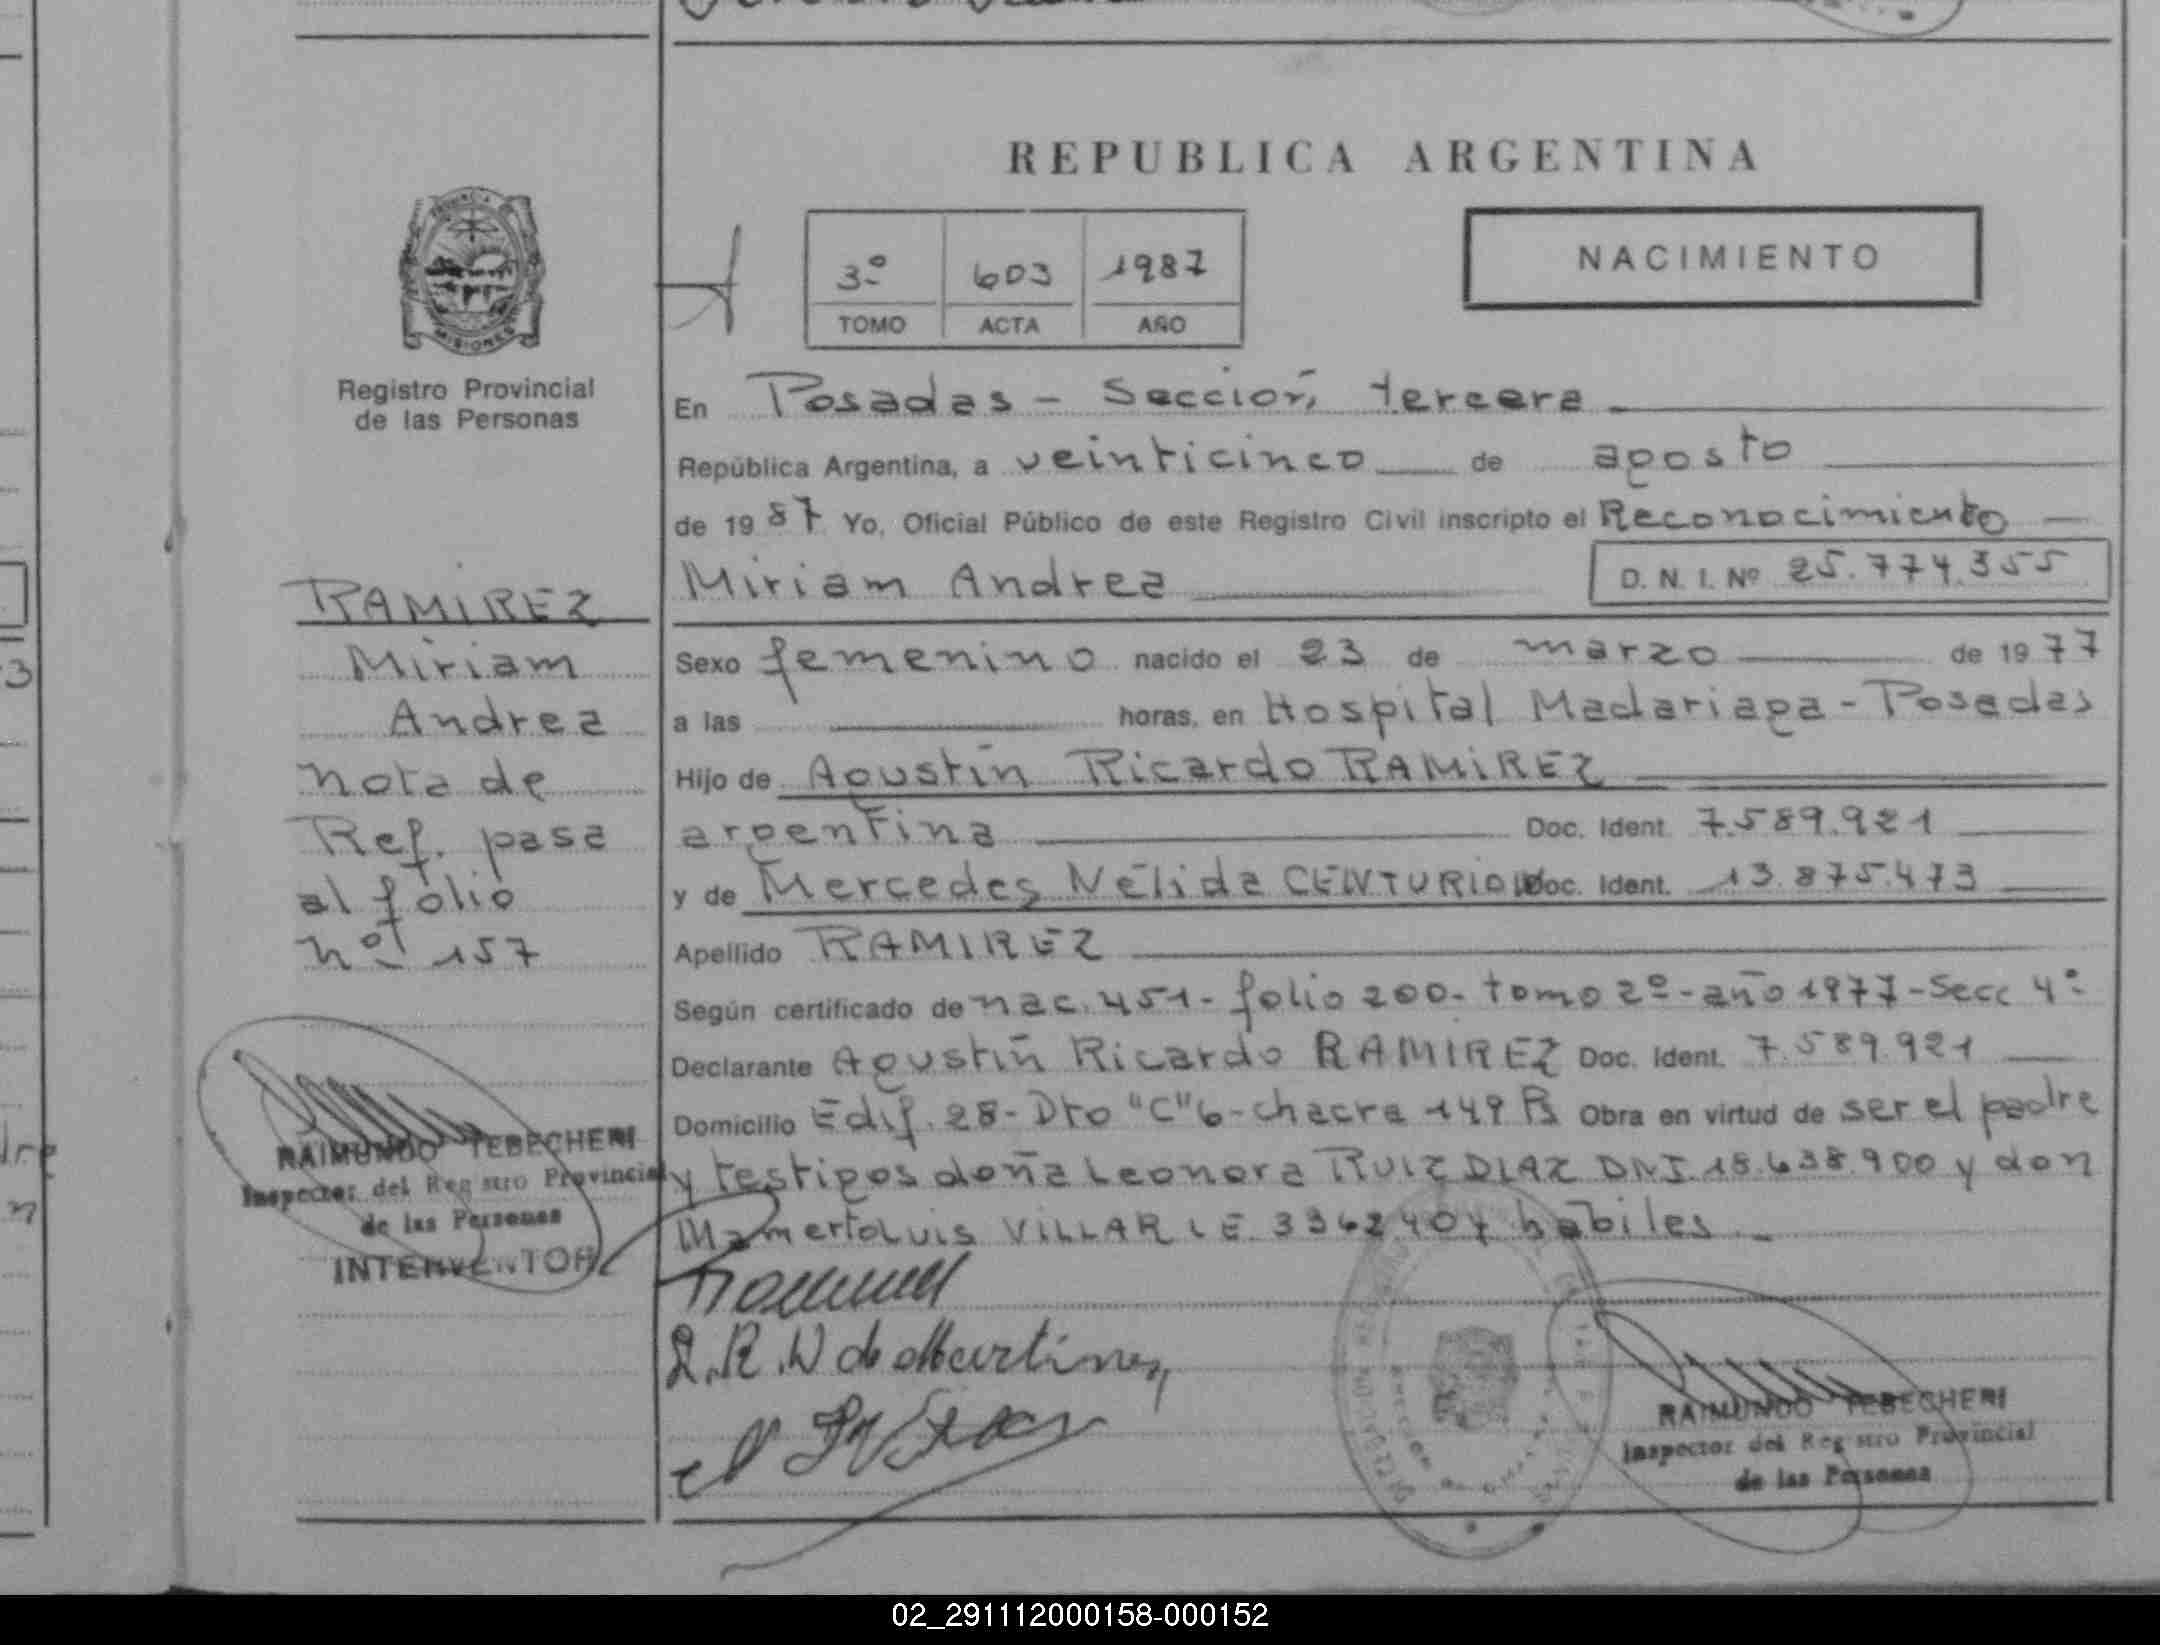 REPUBLICA ARGENTINA
3º 603 1987
TOMO ACTA AÑO
NACIMIENTO
PROVINCIA
MISIONES
Registro Provincial
de las Personas
RAMIREZ
Miriam
Andrea
Nota de
Ref. pasa
al folio
Nº 157
RAIMUNDO TEBECHERI
Inspector del Registro Provincial
de las Personas
INTERVENTOR
En Posadas - Sección, tercera
República Argentina, a veinticinco de agosto
de 1987 Yo, Oficial Público de este Registro Civil inscripto el Reconocimiento
Miriam Andrea D. N. I. Nº 25.774.355
Sexo femenino nacido el 23 de marzo de 1977
a las horas, en Hospital Madariaga - Posadas
Hijo de Agustín Ricardo RAMIREZ
argentina Doc. Ident. 7.589.921
y de Mercedes Nélida CENTURION Doc. Ident. 13.875.473
Apellido RAMIREZ
Según certificado de nac. 451 - folio 200 - tomo 2º - año 1977 - Secc 4º
Declarante Agustín Ricardo RAMIREZ Doc. Ident. 7.589.921
Domicilio Edif. 28 - Dto "C" 6 - chacra 149 Ps Obra en virtud de ser el padre
y testigos doña Leonora RUIZ DIAZ DNI. 18.638.900 y don
Mamerto Luis VILLAR LE 3362407 habiles
L. R. D de Martinez
RAIMUNDO TEBECHERI
Inspector del Registro Provincial
de las Personas
02_291112000158-000152